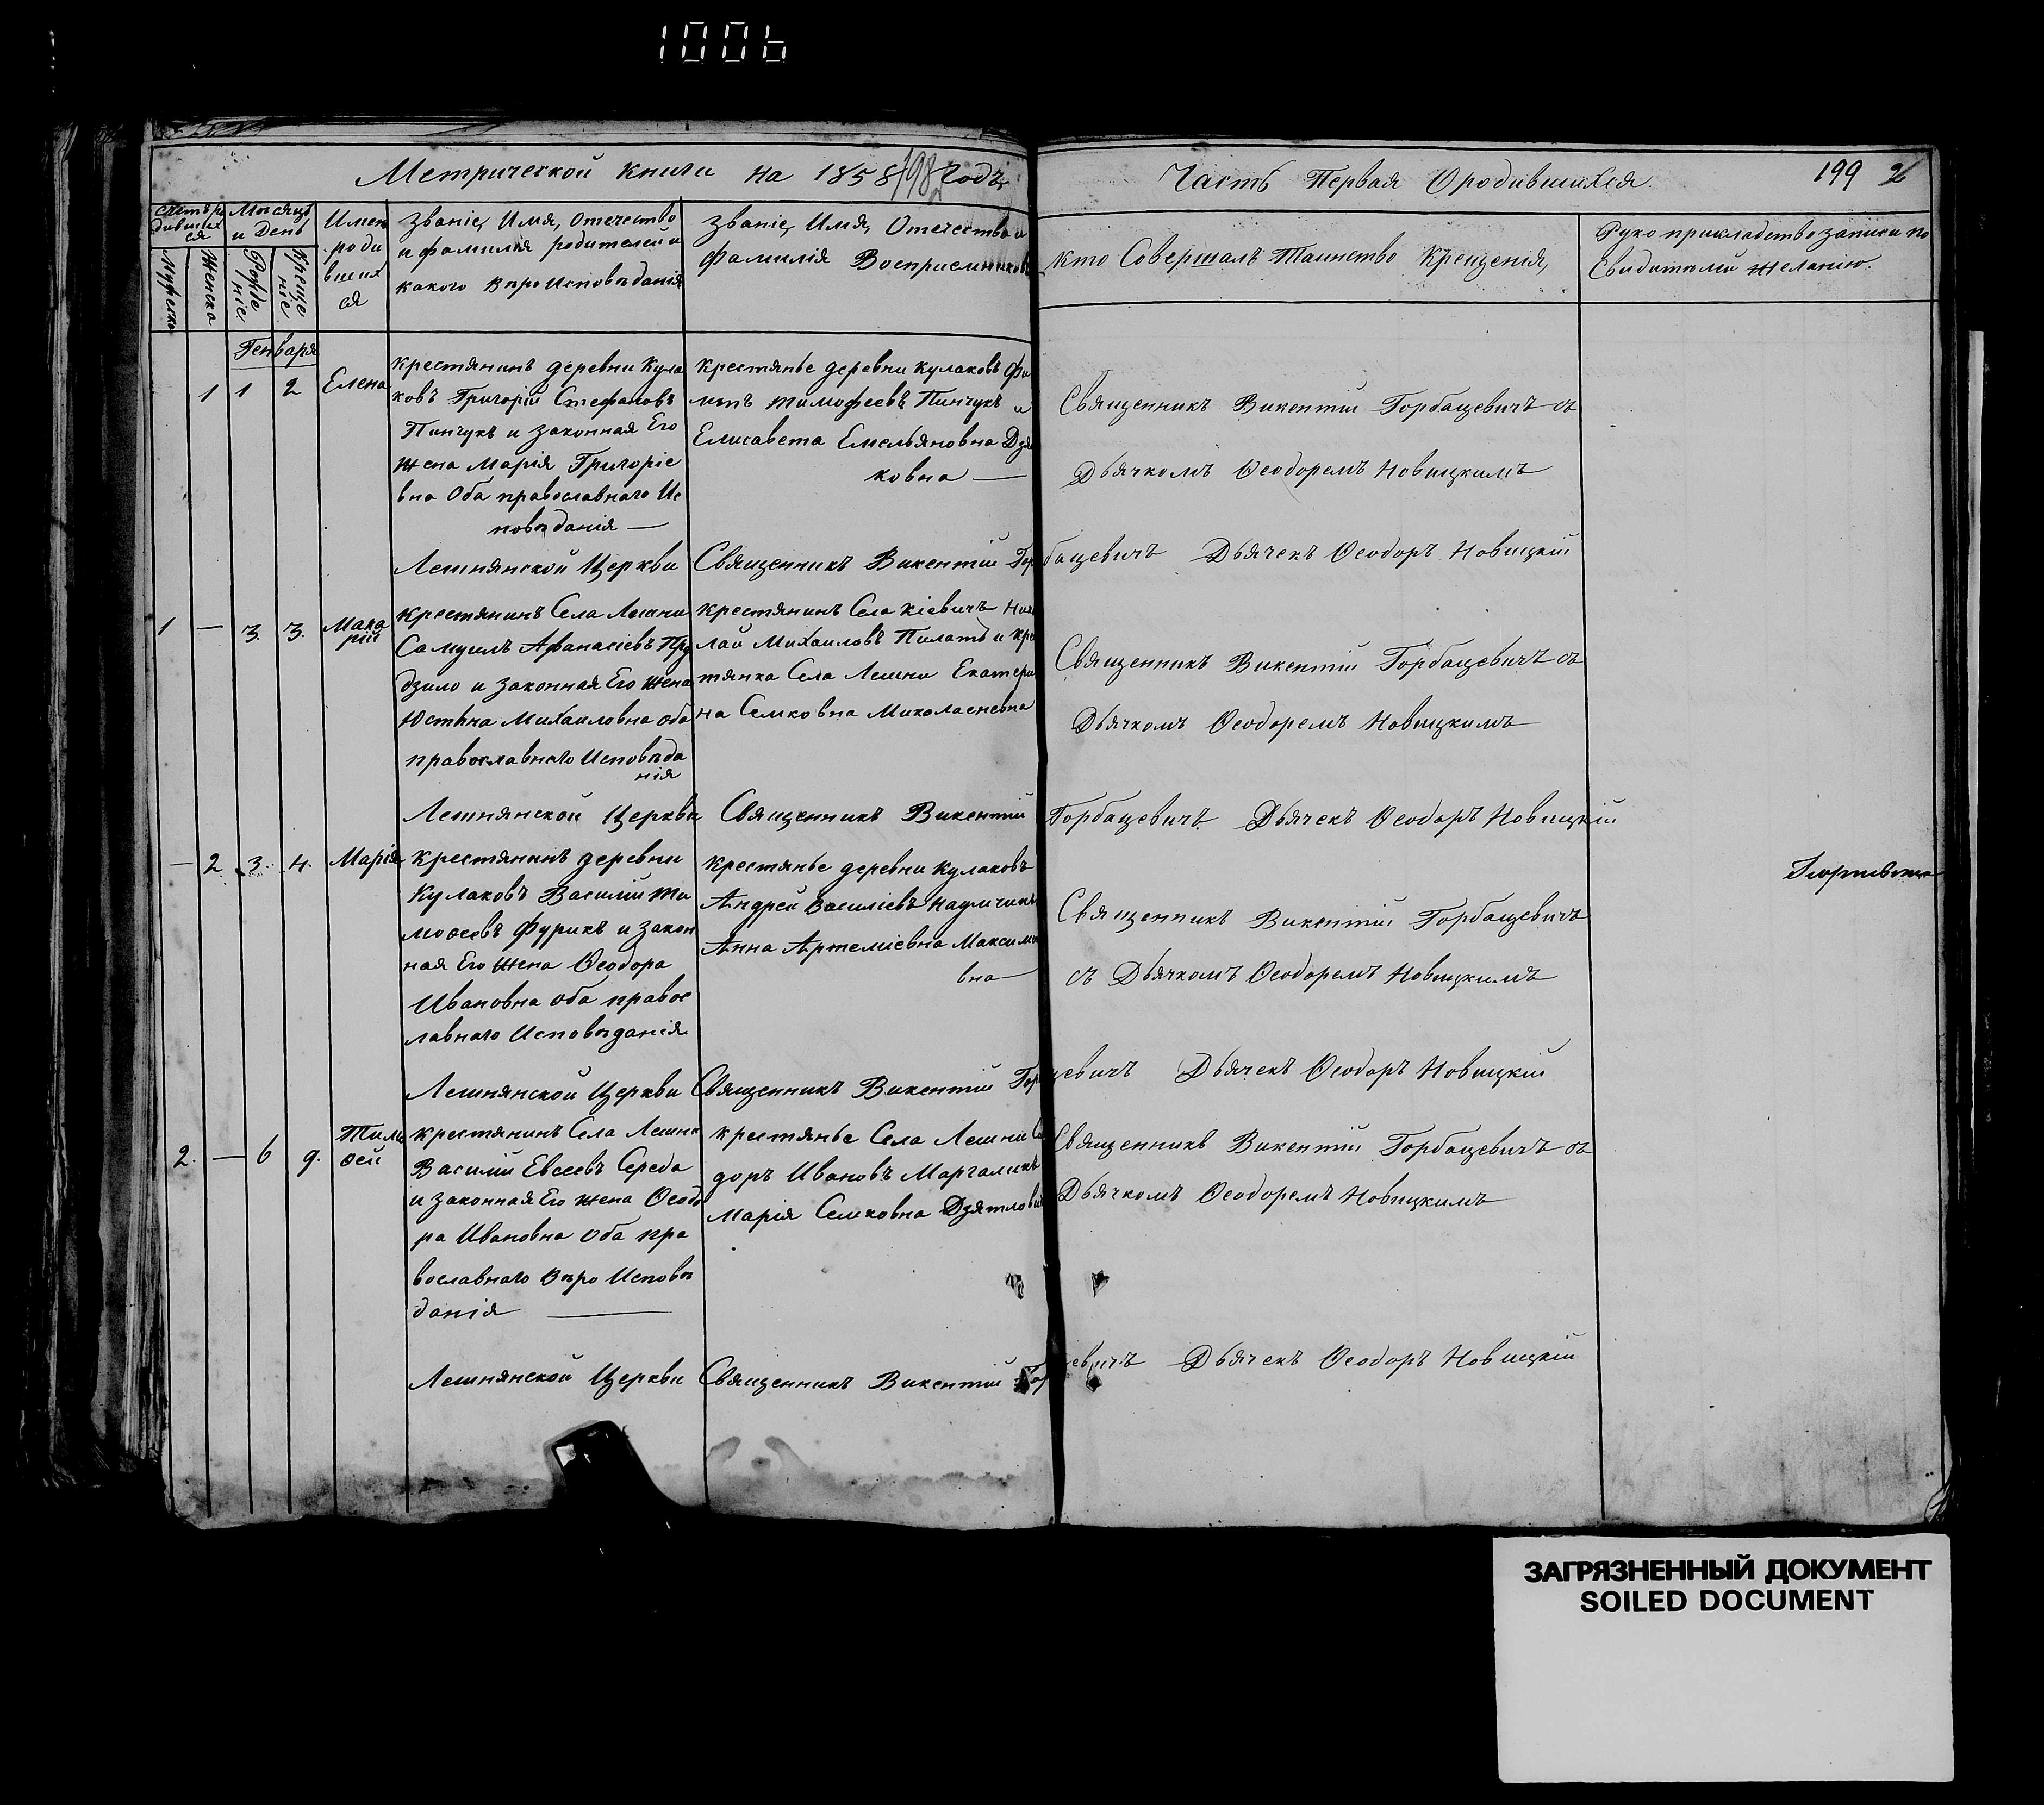 1006
Метрической книги на 1858 Годъ
198
Часть Первая Ородившихся.
199
Счетъ ро
дивших
ся
Мѣсяцъ
и День
Мужеска
Женска
Рожде
ніе
Креще
ніе
Имен
роди
вших
ся
Званіе, Имя, Отечество
и фамилія родителей и
какого вѣроисповѣданія
Званіе, Имя, Отечество и
фамилія Восприемниковъ
кто Совершалъ Таинство Крещенія,
Руко прикладство записи по
Свидѣтелей желанію.
Генваря
1 1 2 Елена
крестянинъ деревни Кула
ковъ Григорій Стефановъ
Пинчукъ и законная Его
жена Марія Григоріе
вна Оба православнаго Ис
повѣданія —
крестянье деревни Кулаковъ Фи
липъ тимофеевъ Пинчукъ и
Елисавета Емельяновна Дзя
ковна —
Священникъ Викентій Горбацевичъ съ
Дьячкомъ Ѳеодоремъ Новицкимъ
Лешнянской Церкви Священникъ Викентій Гор
бацевичъ Дьячекъ Ѳеодоръ Новицкій
1 — 3. 3. Мака
рій
крестянинъ Села Лешни
Самуилъ Афанасіевъ Пру
дзило и законная Его жена
Юстина Михаиловна оба
православнаго Исповѣда
нія
крестянинъ Села Кіевичъ Нико
лай Михаиловъ Пилатъ и кре
тянка Села Лешни Екатери
на Семковна Миколаеневна
Священникъ Викентій Горбацевичъ съ
Дьячкомъ Ѳеодоремъ Новицкимъ
Лешнянской Церкви Священникъ Викентій
Горбацевичъ Дьячекъ Ѳеодоръ Новицкій
— 2. 3. 4. Марія
крестянинъ деревни
Кулаковъ Василій ти
моѳеевъ Фурикъ и закон
ная Его жена Ѳеодора
Ивановна оба правос
лавнаго Исповѣданія
крестянье деревни Кулаковъ
Андрей Василіевъ Наумчикъ
Анна Артеміевна Максимо
вна —
Священникъ Викентій Горбацевичъ
съ Дьячкомъ Ѳеодоремъ Новицкимъ
Лешнянской Церкви Священникъ Викентій Гор
цевичъ Дьячекъ Ѳеодоръ Новицкій
2. — 6 9. Тимо
ѳей
крестянинъ Села Лешни
Василій Евсеевъ Середа
и законная Его жена Ѳеодо
ра Ивановна Оба пра
вославнаго Вѣро Исповѣ
данія —
крестянье Села Лешни Си
доръ Ивановъ Маргаликъ
Марія Семковна Дзятлови
Священникъ Викентій Горбацевичъ съ
Дьячкомъ Ѳеодоремъ Новицкимъ
Лешнянской Церкви Священникъ Викентій Гор
евичъ Дьячекъ Ѳеодоръ Новицкій
ЗАГРЯЗНЕННЫЙ ДОКУМЕНТ
SOILED DOCUMENT